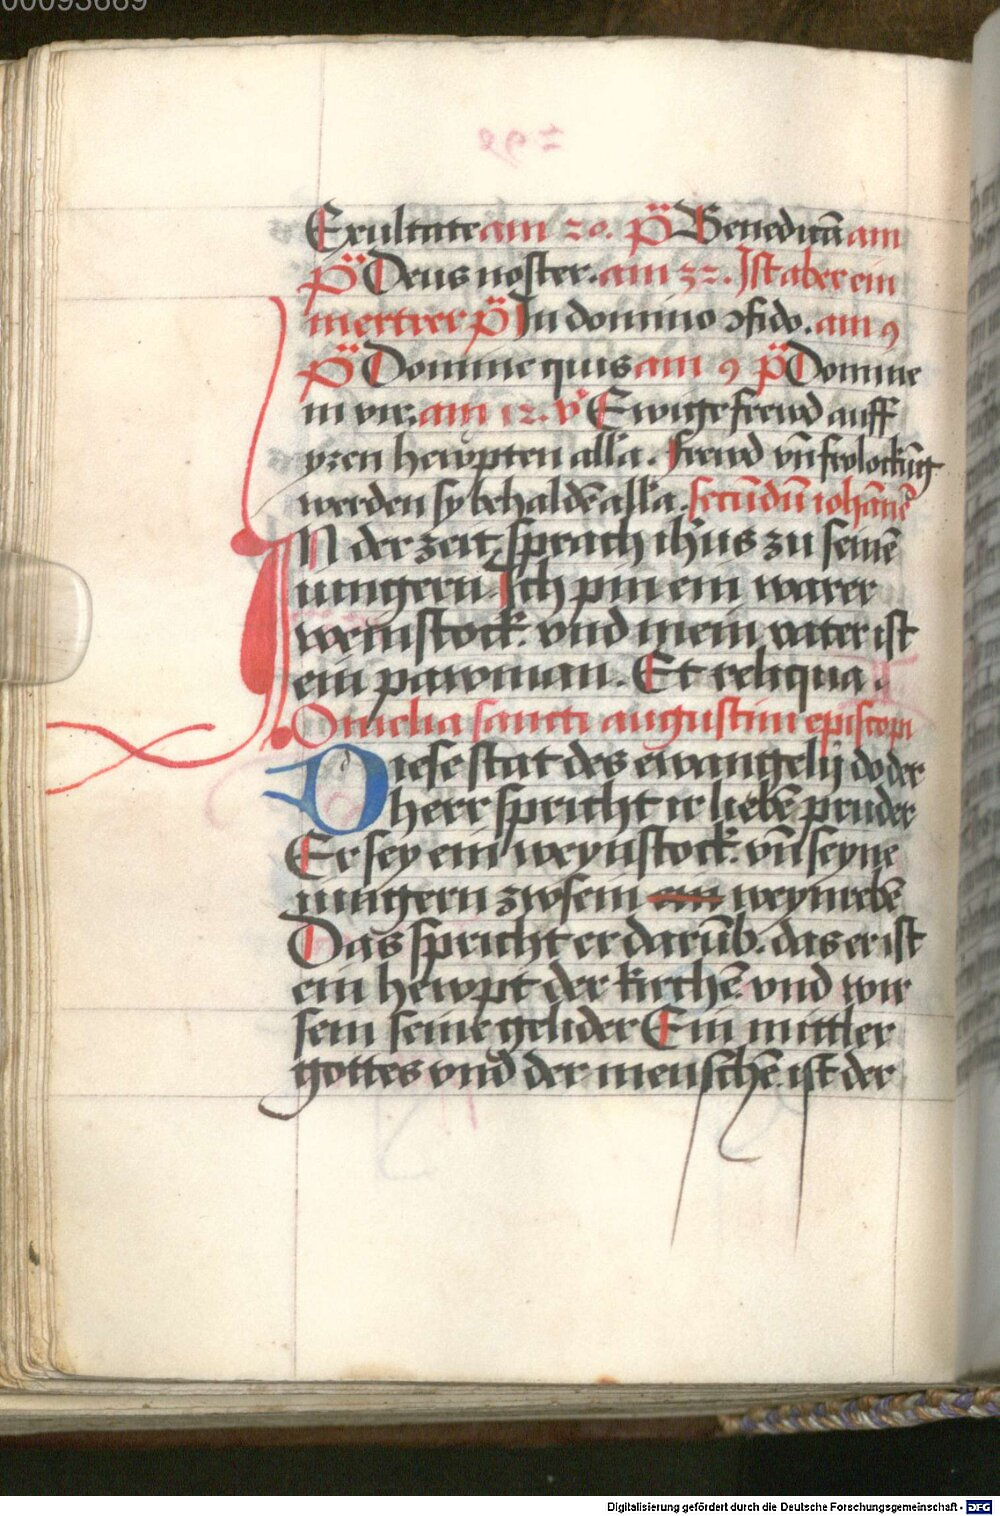 00093669
Exultate am 20. p̈s Benedicā am
p̈s Deus noster. am 32. Ist aber ein
mertrer p̈s In domino ꝯfido. am 9
p̈s Domine quis am 9 p̈s Domine
in vir. am 12. v̊ Ewige frewd auff
yren hewpten alla. frewd vn̄ frolockūg
werden sy behaldē alla. secundū iohānē
IN der zeit sprach ihūs zu seinē
iungern Ich pin ein warer
weinstock. vnd mein vater ist
ein pawman. Et reliqua.
Omelia sancti augustini episcopi
Diese stat des ewangelij do der
herr spricht ir liebē pruder
Er sey ein weynstock. vn̄ seyne
iungern zw sein ein weynrebē
Das spricht er darūb. das er ist
ein hewpt der kirchē vnd wir
sein seine gelider Ein mittler
gottes vnd der menschē. ist der
Digitalisierung gefördert durch die Deutsche Forschungsgemeinschaft - DFG